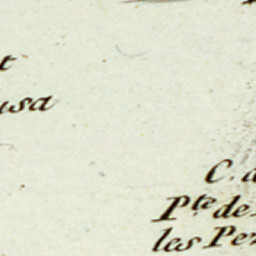 t
usa
C. d
Pte de
les Pe